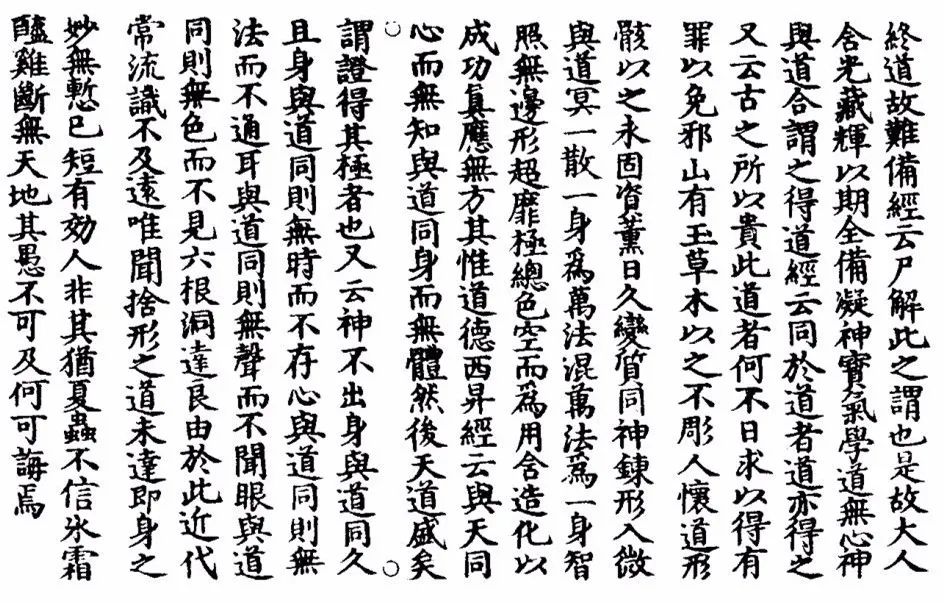 終道故難備經云尸解此之謂也是故大人
含光藏輝以期全備凝神寶氣學道無心神
與道合謂之得道經云同於道者道亦得之
又云古之所以貴此道者何不日求以得有
罪以免邪山有玉草木以之不彫人懷道形
骸以之永固資薰日久變質同神鍊形入微
與道冥一散一身爲萬法混萬法爲一身智
照無邊形超靡極總色空而爲用含造化以
成功真應無方其惟道德西昇經云與天同
心而無知與道同身而無體然後天道盛矣
謂證得其極者也又云神不出身與道同久
且身與道同則無時而不存心與道同則無
法而不通耳與道同則無聲而不聞眼與道
同則無色而不見六根洞達良由於此近代
常流識不及遠唯聞捨形之道未達即身之
妙無慙已短有効人非其猶夏蟲不信氷霜
醯雞斷無天地其愚不可及何可誨焉